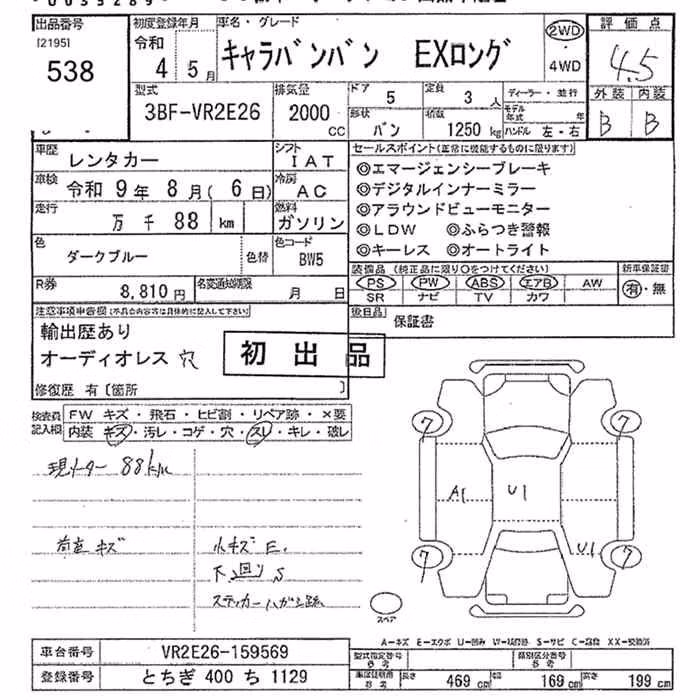 出品番号
[2195]
538
初度登録年月
令和
4 5月
車名・グレード
キャラバンバン EXロング
2WD
・
4WD
評価点
4.5
外装 内装
B B
型式
3BF-VR2E26
排気量
2000
CC
ドア
5
定員
3人
形状
バン
積数
1250kg
ディーラー・並行
モデル年式 年
ハンドル 左・右
車歴
レンタカー
シフト
IAT
車検
令和 9年 8月(6日)
冷房
AC
走行
万千88 km
燃料
ガソリン
色
ダークブルー
色替
色コード
BW5
R券
8,810円
名変通知期限
月 日
セールスポイント(正常に機能するものに限ります)
◎エマージェンシーブレーキ
◎デジタルインナーミラー
◎アラウンドビューモニター
◎LDW ◎ふらつき警報
◎キーレス ◎オートライト
装備品 (純正品に限り○をつけてください)
PS PW ABS エアB AW
SR ナビ TV カワ
新車保証書
有・無
後日品
保証書
注意事項申告欄(不具合内容等は具体的に記入して下さい)
輸出歴あり
オーディオレス 穴
初出品
修復歴 有〔箇所 〕
検査員記入欄
FW キズ・飛石・ヒビ割・リペア跡・×要
内装 キズ・汚レ・コゲ・穴・スレ・キレ・破レ
現メーター 88km
荷室 キズ
小キズ E.
下廻り S
ステッカーハガシ跡
7 7
A1 U1
7 U1 7
スペア
A—キズ E—エクボ U—凹み W—補修跡 S—サビ C—腐蝕 XX—交換済
車台番号
VR2E26-159569
登録番号
とちぎ 400 ち 1129
型式指定番号
参考
類別区分番号
参考
車両証明用
参考
長さ 469cm
幅 169cm
高さ 199cm